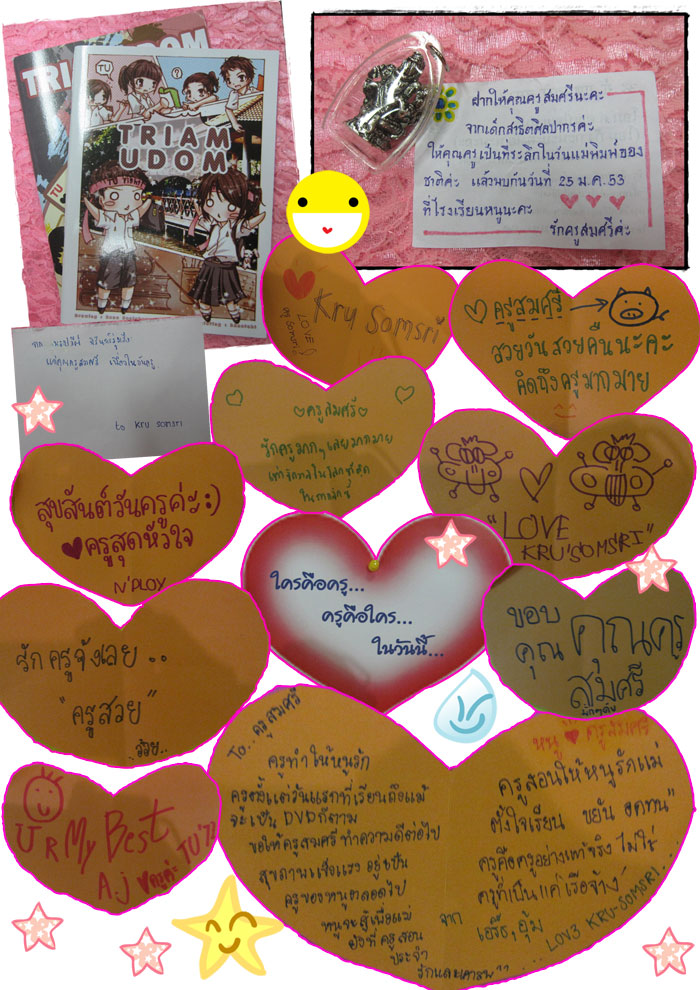 TU
?
TRIAM
UDOM
ฝากให้คุณครูสมศรีนะคะ
จากเด็กสาธิตศิลปากรค่ะ
ให้คุณครูเป็นที่ระลึกในวันแม่พิมพ์ของ
ชาติค่ะ แล้วพบกันวันที่ 25 ม.ค.53
ที่โรงเรียนหนูนะคะ
รักครูสมศรีค่ะ
Kru Somsri
LOVE
ครูสมศรี
สวยวันสวยคืนนะคะ
คิดถึงครูมากมาย
to Kru somsri
ครูสมศรี
"LOVE
KRU'SOMSRI"
สุขสันต์วันครูค่ะ:)
ครูสุดหัวใจ
N'PLOY
ใครคือครู...
ครูคือใคร...
ในวันนี้...
ขอบ
คุณ คุณครู
สมศรี
รักครูจังเลย ..
"ครูสวย"
U R My Best
A.j ครูค่ะ TU'72
To.. ครูสมศรี
ครูทำให้หนูรัก
ครูตั้งแต่วันแรกที่เรียนถึงแม้
จะเป็น DVD ก็ตาม
ขอให้ครูสมศรี ทำความดีต่อไป
สุขภาพแข็งแรง อยู่เป็น
ครูของหนูตลอดไป
หนูจะสู้เพื่อแม่
อย่างที่ครูสอน
ประจำ
หนู ครูสมศรี
ครูสอนให้หนูรักแม่
ตั้งใจเรียน ขยัน อดทน"
ครูคือครูอย่างแท้จริง ไม่ใช่
ครูที่เป็นแค่เรือจ้าง
จาก
LOV3 KRU-SOMSRI...